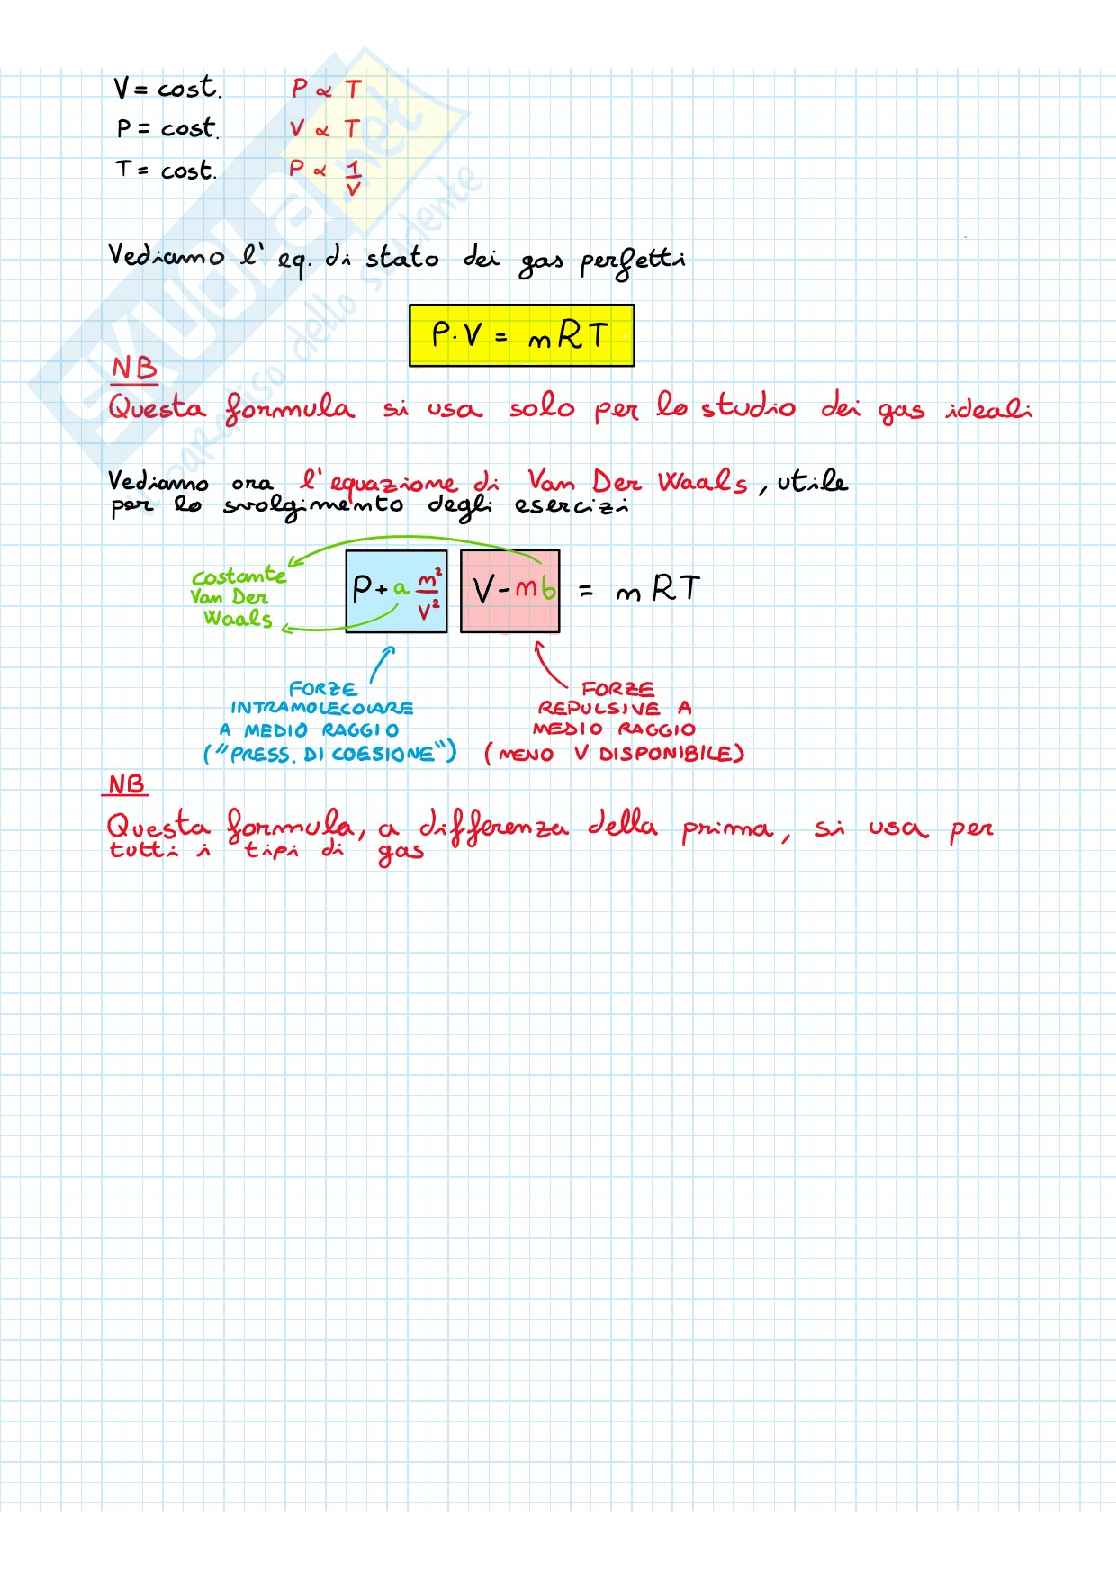 V = cost. P ∝ T
P = cost. V ∝ T
T = cost. P ∝ 1/V
Vediamo l' eq. di stato dei gas perfetti
P·V = nRT
NB
Questa formula si usa solo per lo studio dei gas ideali
Vediamo ora l'equazione di Van Der Waals, utile
per lo svolgimento degli esercizi
P + a n²/V² V - nb = nRT
costante
Van Der
Waals
FORZE
INTRAMOLECOLARE
A MEDIO RAGGIO
("PRESS. DI COESIONE")
FORZE
REPULSIVE A
MEDIO RAGGIO
(MENO V DISPONIBILE)
NB
Questa formula, a differenza della prima, si usa per
tutti i tipi di gas
SKUOLA.net
paradiso dello studente